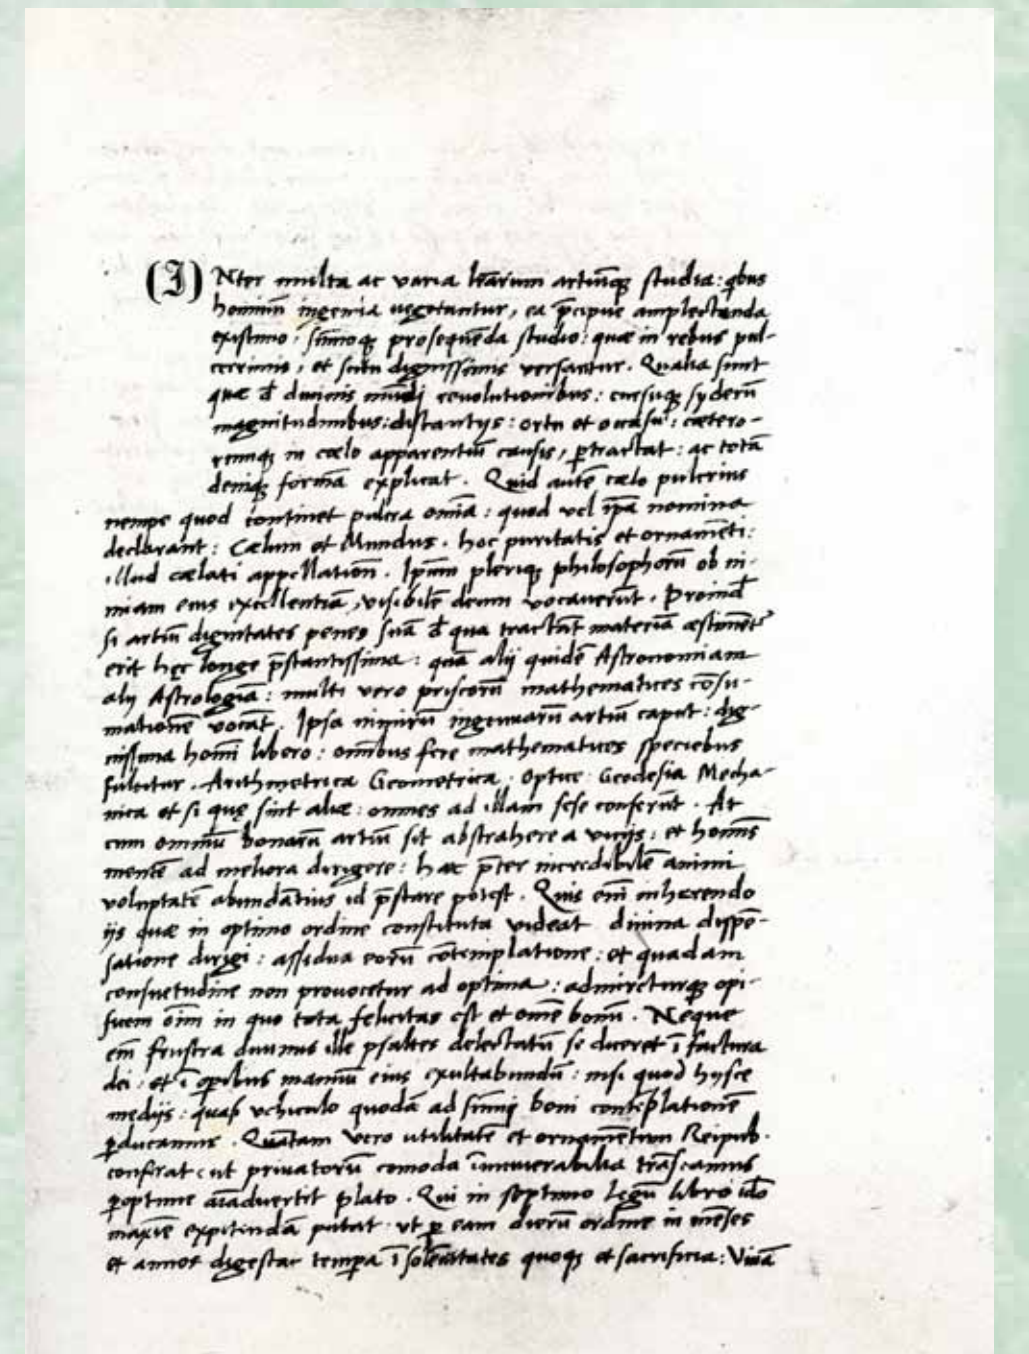 (I) Nter multa ac varia lr̄arum artiūq̢ studia: qͥbus
hominū ingenia vegetantur, ea p̄cipue amplectenda
existimo, sūmoq̢ prosequēda studio: quæ in rebus pul-
cerrimis, et scitu dignissimis versantur. Qualia sunt
quæ đ divinis mūdi revolutionibus: cursuq̢ syderū
magnitudinibus: distantijs: ortu et occasu: cætero-
rumq̢ in cœlo apparentiū causis, ꝑtractat: ac totā
deniq̢ formā explicat. Quid autē cœlo pulcrius
nempe quod continet pulcra omīa: quod vel ip̄a nomina
declarant: Cælum et Mundus. hoc puritatis et ornamēti:
illud cælati appellatiōn. Ipsūm pleriq̢ philosophorū ob ni-
miam eius excellentiā, visibilē deum vocaverūt. Proinđ
si artiū dignitates penes suā đ qua tractāt materiā æstimētᷣ
erit hęc longe p̄stantissima: quā alij quidē Astronomiam
alij Astrologiā: multi vero priscorū mathematices cōsu-
mationē vocāt. Ipsa nimirū ingenuarū artiū caput: dig-
nissima homī libero: omībus fere mathematices speciebus
fulcitur. Arithmetrica Geometrica. Optice Geodesia Mecha-
nica et si quę sint aliæ: omnes ad illam sese conferūt. At
cum omniū bonarū artiū sit abstrahere a vicijs: et homīs
mentē ad meliora dirigere: hæc p̄ter incredibilē animi
voluptatē abundātius id p̄stare potest. Quis em̄ inhærendo
ijs quæ in optimo ordine constituta videat divina dispē-
satione dirigi: assidua eorū cōtemplatione: et quadam
consuetudine non provocetur ad optima: admireturq̢ opi-
ficem oīm in quo tota felicitas est et omē bonū. Neque
em̄ frustra divinus ille psaltes delectatū se diceret ī factura
dei: et ī oꝑibus manuū eius exultabundū: nisi quod hysce
medijs: quasi vehiculo quodā ad sūmi boni contēplationē
ꝑducamur. Quātam vero utilitatē et ornamētum Reipub.
conferat: ut privatorū comoda īnumerabilia trāseamus
ꝑoptime aīadvertit plato. Qui in septimo Legū libro iđo
maxīe expetendā putat: ut ꝑ eam dierū ordine in mēses
et annos digesta tempora ī solēnitates quoq̢ et sacrificia: Vivā